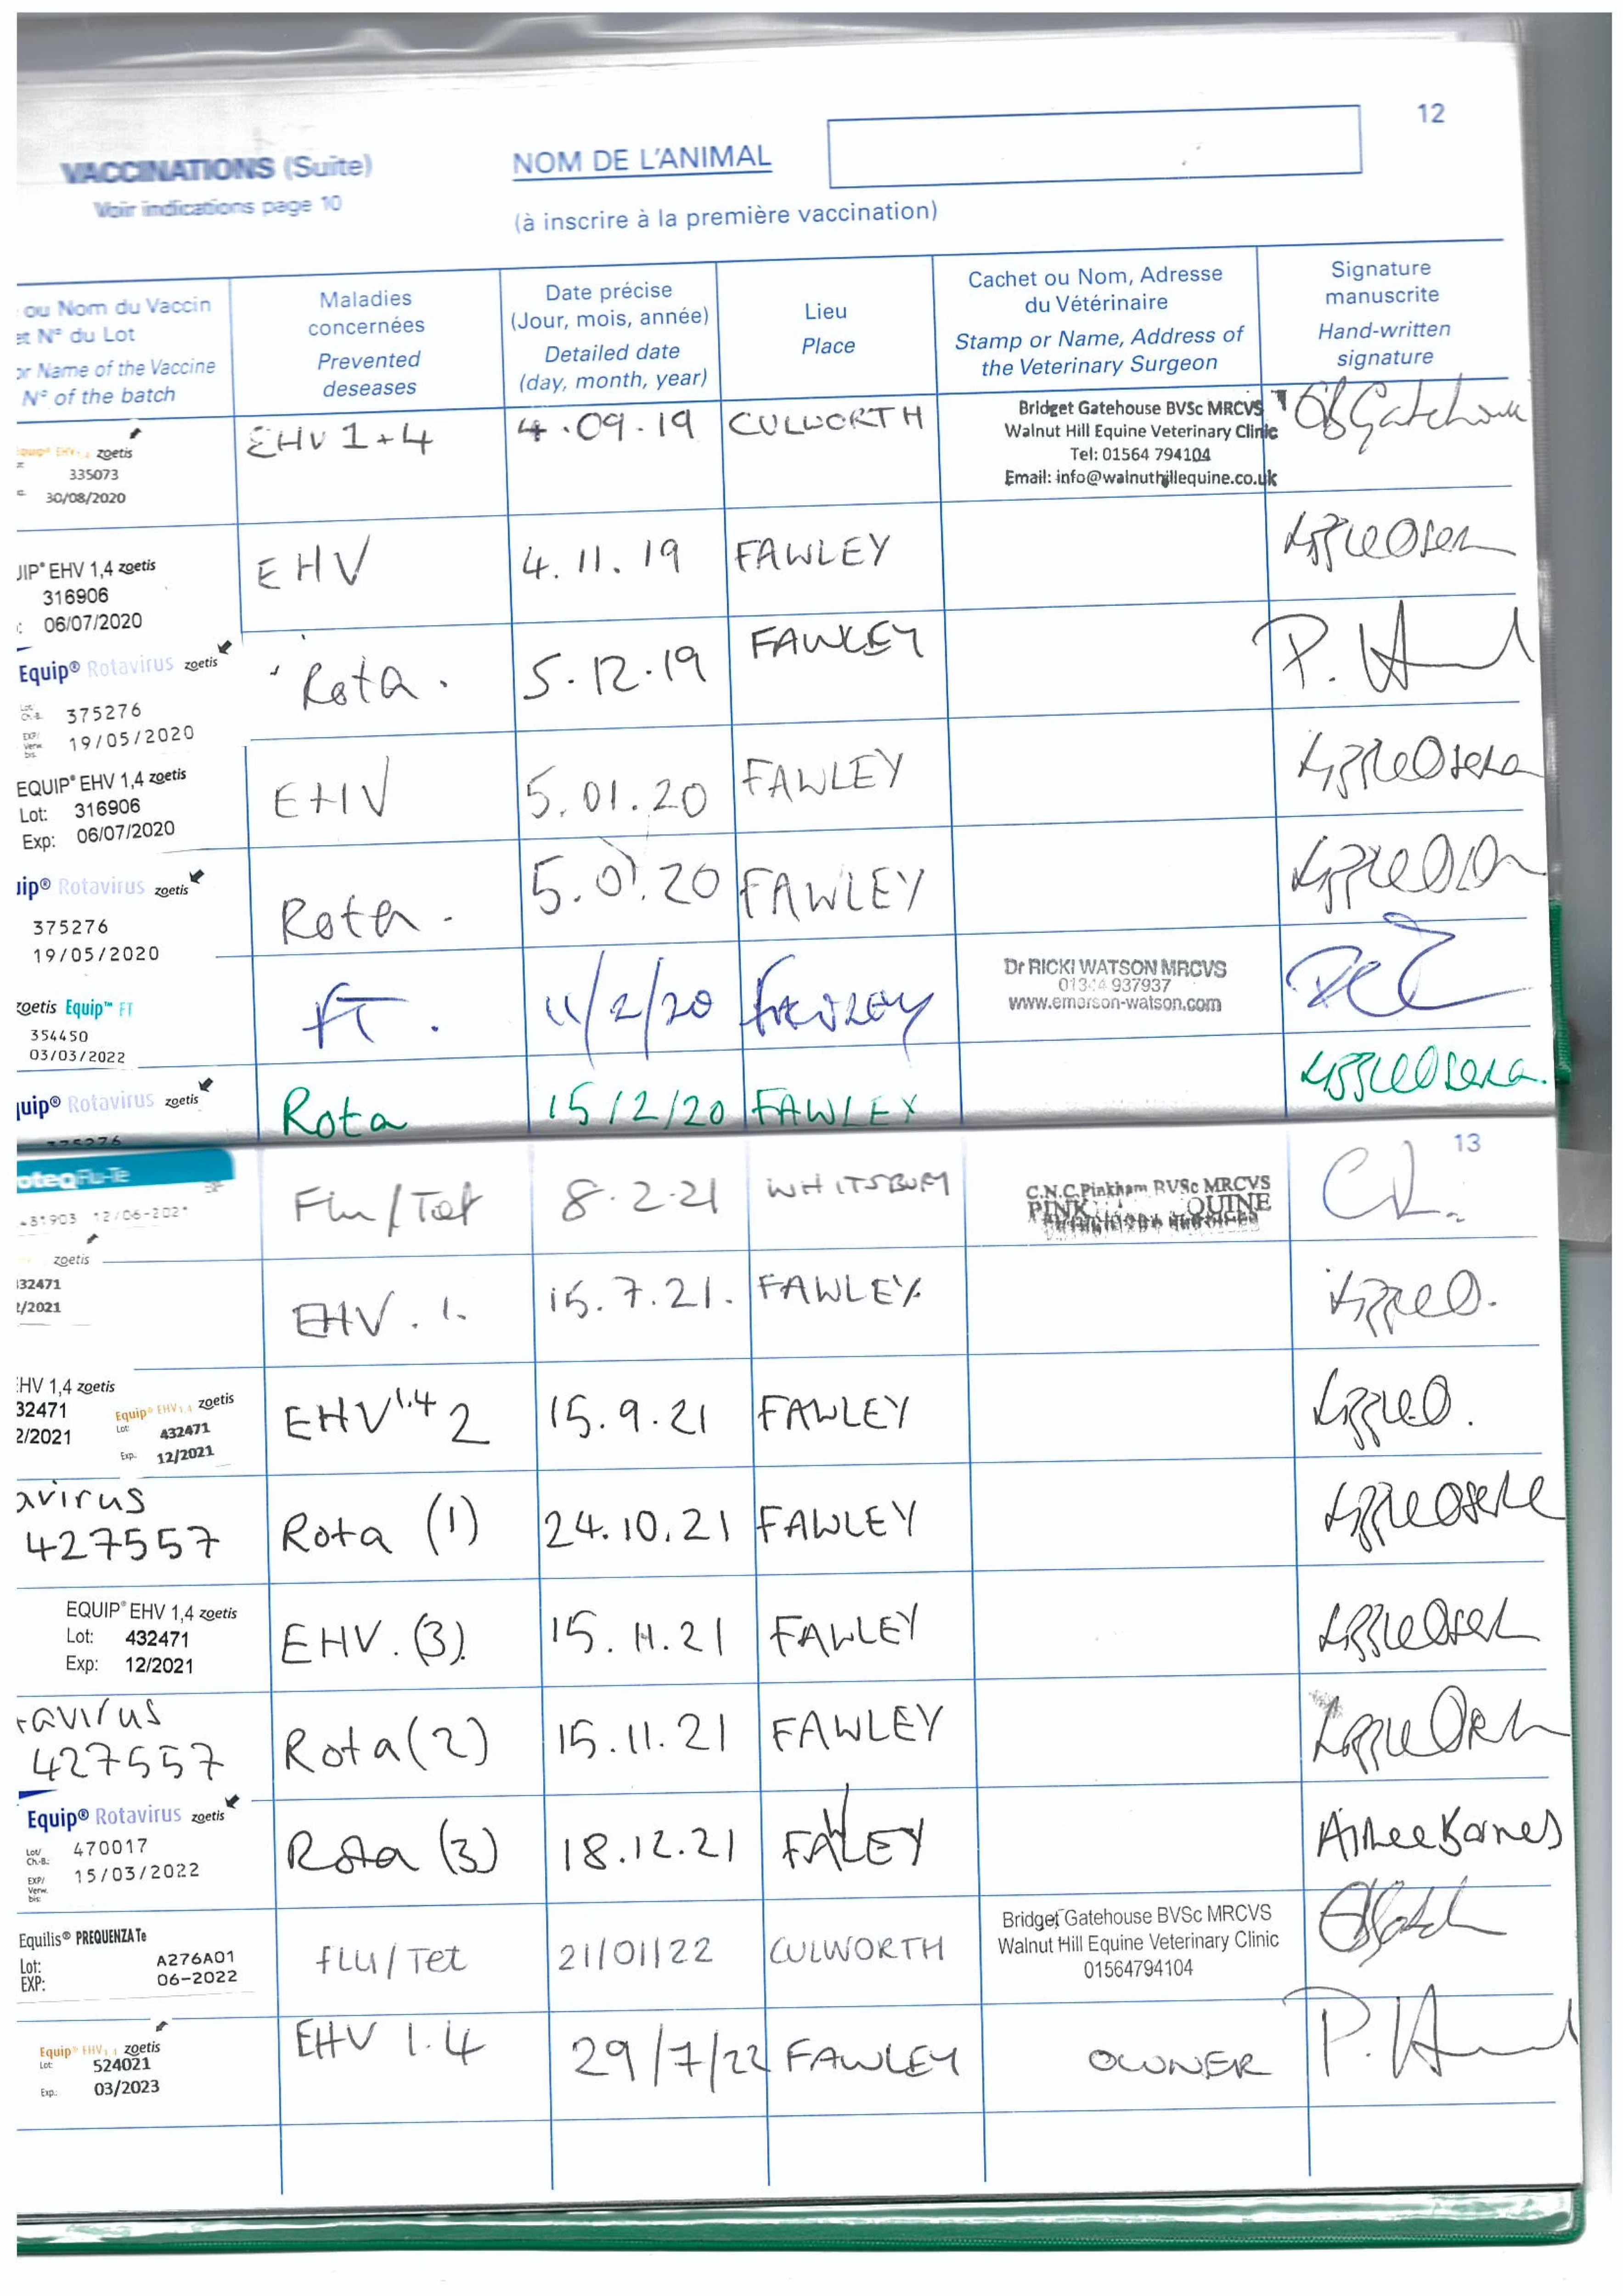 12
VACCINATIONS (Suite)
Voir indications page 10
NOM DE L'ANIMAL
(à inscrire à la première vaccination)
ou Nom du Vaccin
et N° du Lot
or Name of the Vaccine
N° of the batch
Maladies
concernées
Prevented
deseases
Date précise
(Jour, mois, année)
Detailed date
(day, month, year)
Lieu
Place
Cachet ou Nom, Adresse
du Vétérinaire
Stamp or Name, Address of
the Veterinary Surgeon
Signature
manuscrite
Hand-written
signature
Equip® EHV 1,4 zoetis
335073
30/08/2020
EHV 1+4
4.09.19
CULWORTH
Bridget Gatehouse BVSc MRCVS
Walnut Hill Equine Veterinary Clinic
Tel: 01564 794104
Email: info@walnuthillequine.co.uk
Gatehouse
UIP® EHV 1,4 zoetis
316906
: 06/07/2020
EHV
4.11.19
FAWLEY
Equip® Rotavirus zoetis
Lot/
Ch.-B. 375276
EXP/
Verw.
bis: 19/05/2020
Rota.
5.12.19
FAWLEY
EQUIP® EHV 1,4 zoetis
Lot: 316906
Exp: 06/07/2020
EHV
5.01.20
FAWLEY
uip® Rotavirus zoetis
375276
19/05/2020
Rota.
5.01.20
FAWLEY
zoetis Equip™ FT
354450
03/03/2022
FT.
11/2/20
FAWLEY
Dr RICKI WATSON MRCVS
937937
www.emerson-watson.com
quip® Rotavirus zoetis
375276
Rota
15/2/20
FAWLEY
13
oteqFlu-Te
12/06-2021
Flu/Tet
8.2.21
WHITSBURY
C.N.C.Pinkham BVSc MRCVS
PINK QUINE
zoetis
32471
2/2021
EHV.1.
15.7.21.
FAWLEY
EHV 1,4 zoetis
32471
2/2021
Equip® EHV 1,4 zoetis
Lot: 432471
Exp. 12/2021
EHV 1.4 2
15.9.21
FAWLEY
avirus
427557
Rota (1)
24.10.21
FAWLEY
EQUIP® EHV 1,4 zoetis
Lot: 432471
Exp: 12/2021
EHV. (3).
15.11.21
FAWLEY
tavirus
427557
Rota (2)
15.11.21
FAWLEY
Equip® Rotavirus zoetis
Lot/
Ch.-B.: 470017
EXP/
Verw.
bis: 15/03/2022
Rota (3)
18.12.21
FAWLEY
Aimee Barnes
Equilis® PREQUENZA Te
Lot: A276A01
EXP: 06-2022
FLU/Tet
21/01/22
CULWORTH
Bridget Gatehouse BVSc MRCVS
Walnut Hill Equine Veterinary Clinic
01564794104
Equip® EHV 1,4 zoetis
Lot: 524021
Exp.: 03/2023
EHV 1.4
29/7/22
FAWLEY
OWNER